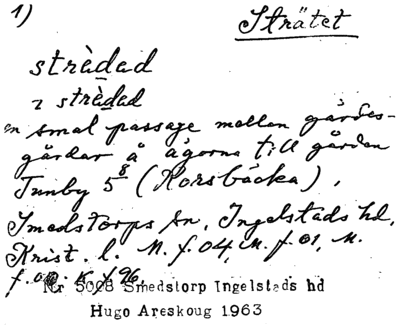 1) Strätet
strèdad
2 strèdad
en smal passage mellan gärdes-
gårdar å ägorna till gården
Tunby 5⁸ (Korsbäcka),
Smedstorps sn, Ingelstads hd,
Krist. l. M. f. 04, M. f. 01, M.
f. K f 96.
Nr 5008 Smedstorp Ingelstads hd
Hugo Areskoug 1963